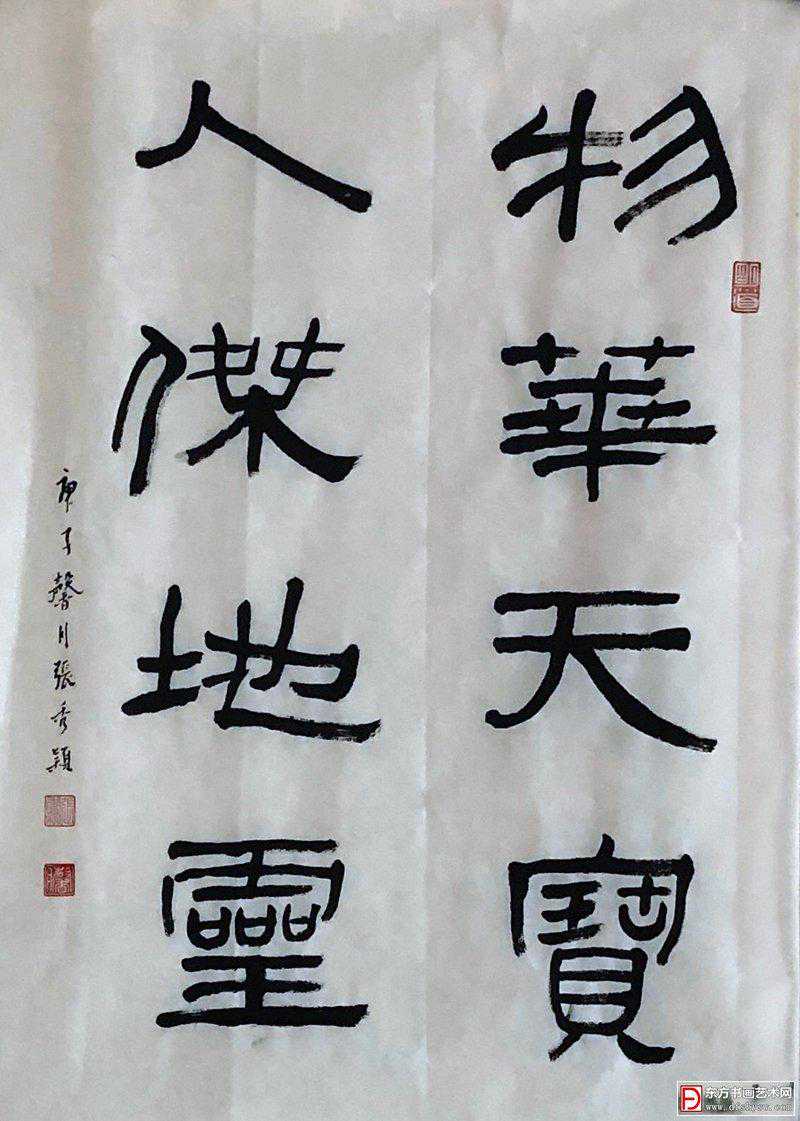 物華天寶
人傑地靈
庚子馨月張秀穎
东方书画艺术网
www.dfshysw.com